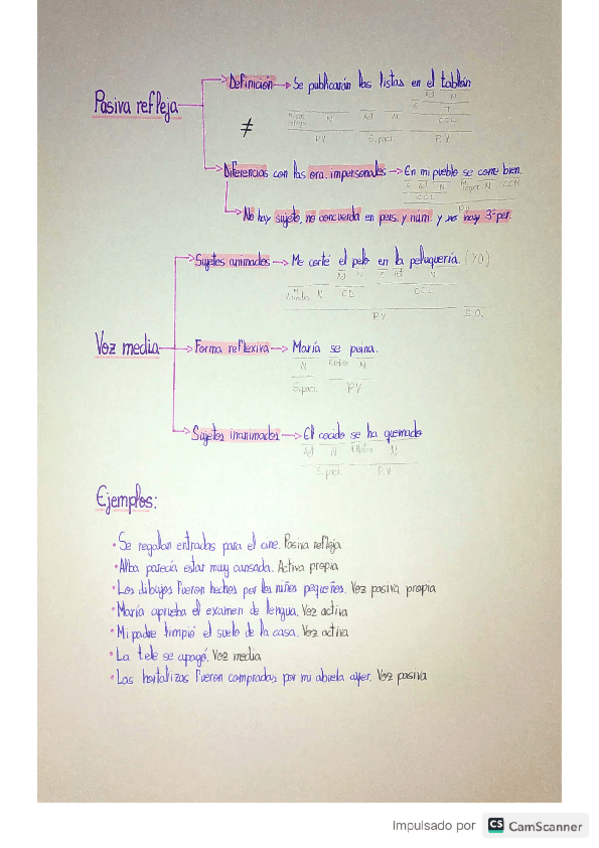 Definición → Se publicarán las listas en el tablón
Pasiva refleja
≠
Diferencias con las ora. impersonales → En mi pueblo se come bien.
No hay sujeto, no concuerda en pers. y núm. y no hay 3ª per.
Sujetos animados → Me corté el pelo en la peluquería. (YO)
Voz media
Forma reflexiva → María se peina.
Sujetos inanimados → El cocido se ha quemado
Ejemplos:
• Se regalan entradas para el cine. Pasiva refleja
• Alba parecía estar muy cansada. Activa propia
• Los dibujos fueron hechos por los niños pequeños. Voz pasiva propia
• María aprueba el examen de lengua. Voz activa
• Mi padre limpió el suelo de la casa. Voz activa
• La tele se apagó. Voz media
• Las hortalizas fueron compradas por mi abuela ayer. Voz pasiva
Impulsado por CS CamScanner